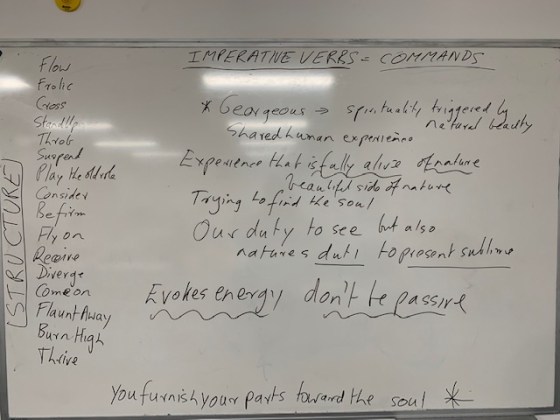 IMPERATIVE VERBS = COMMANDS
STRUCTURE
Flow
Frolic
Cross
Stand up
Throb
Suspend
Play the old role
Consider
Be firm
Fly on
Receive
Diverge
Come on
Flaunt Away
Burn High
Thrive
* Georgeous → spirituality triggered by
natural beauty
Shared human experience
Experience that is fully alive of nature
beautiful side of nature
Trying to find the soul
Our duty to see but also
natures duty to present sublime
Evokes energy don't be passive
You furnish your parts toward the soul *